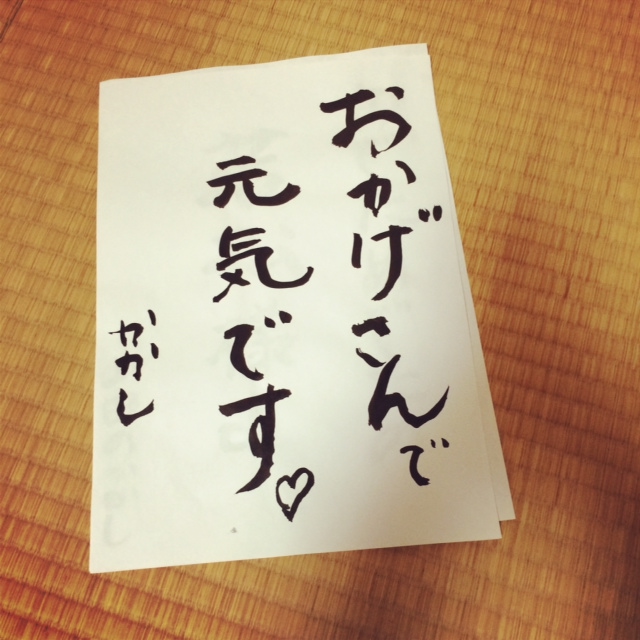 おかげさんで
元気です♡
かかし